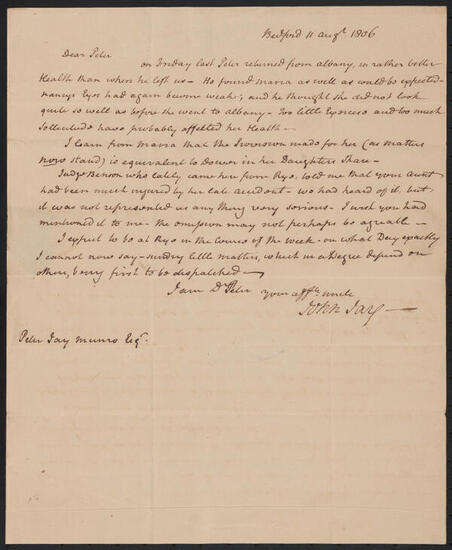 Bedford 11 augt. 1806
Dear Peter
on Friday last Peter returned from albany, in rather better
Health than when he left us — He found Maria as well as could be expected —
nancys Eyes had again become weak; and he thought she did not look
quite so well as before she went to albany — Too little Exercise and too much
Sollicitude have probably affected her Health —
I learn from Maria that the Provision made for her (as matters
now stand) is equivalent to Dower in her Daughters Share —
Judge Benson who lately came here from Rye, told me that your aunt
had been much injured by her late accident — we had heard of it, but
it was not represented as any thing very serious — I wish you had
mentioned it to me — the omission may not perhaps be agreable —
I expect to be at Rye in the course of the week — on what Day exactly
I cannot now say — sundry little matters, which in a Degree depend on
others, being first to be dispatched —
I am Dr. Peter your affte. uncle
John Jay —
Peter Jay Munro Esqr.